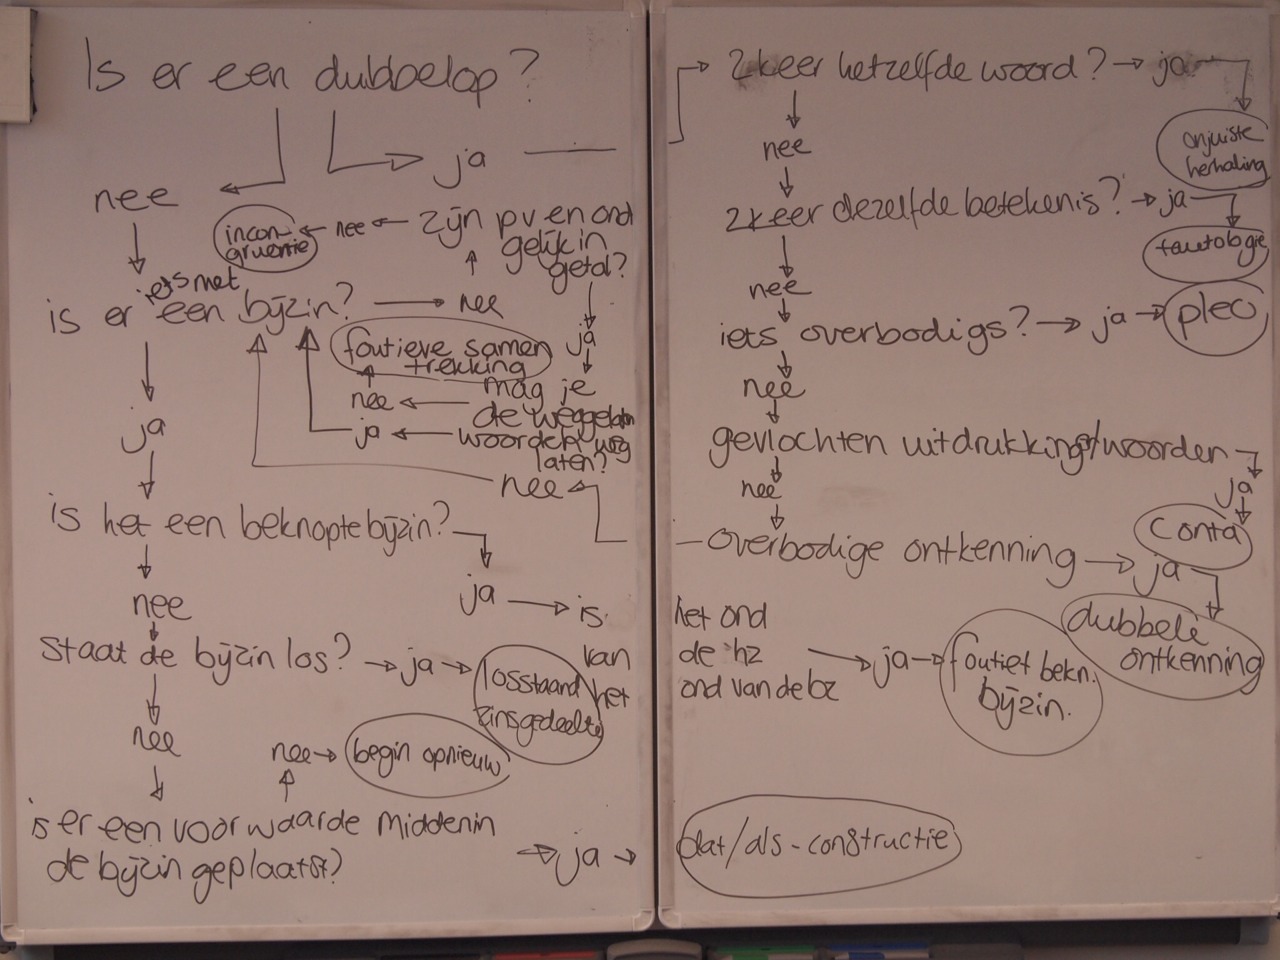 Is er een dubbelop?
ja
nee
zijn pv en ond
gelijk in
getal?
nee
incon-
gruentie
iets met
is er een bijzin?
nee
ja
foutieve samen
trekking
mag je
de weggelaten
woorden weg
laten?
nee
ja
ja
nee
is het een beknopte bijzin?
ja
is
van
het
nee
staat de bijzin los?
ja
losstaand
zinsgedeelte
nee
nee
begin opnieuw
is er een voorwaarde middenin
de bijzin geplaatst?
ja
2 keer hetzelfde woord?
ja
onjuiste
herhaling
nee
2 keer dezelfde betekenis?
ja
tautologie
nee
iets overbodigs?
ja
pleo
nee
gevlochten uitdrukking/woorden
ja
conta
nee
overbodige ontkenning
ja
dubbele
ontkenning
het ond
de hz
ond van de bz
ja
foutief bekn.
bijzin.
dat/als-constructie